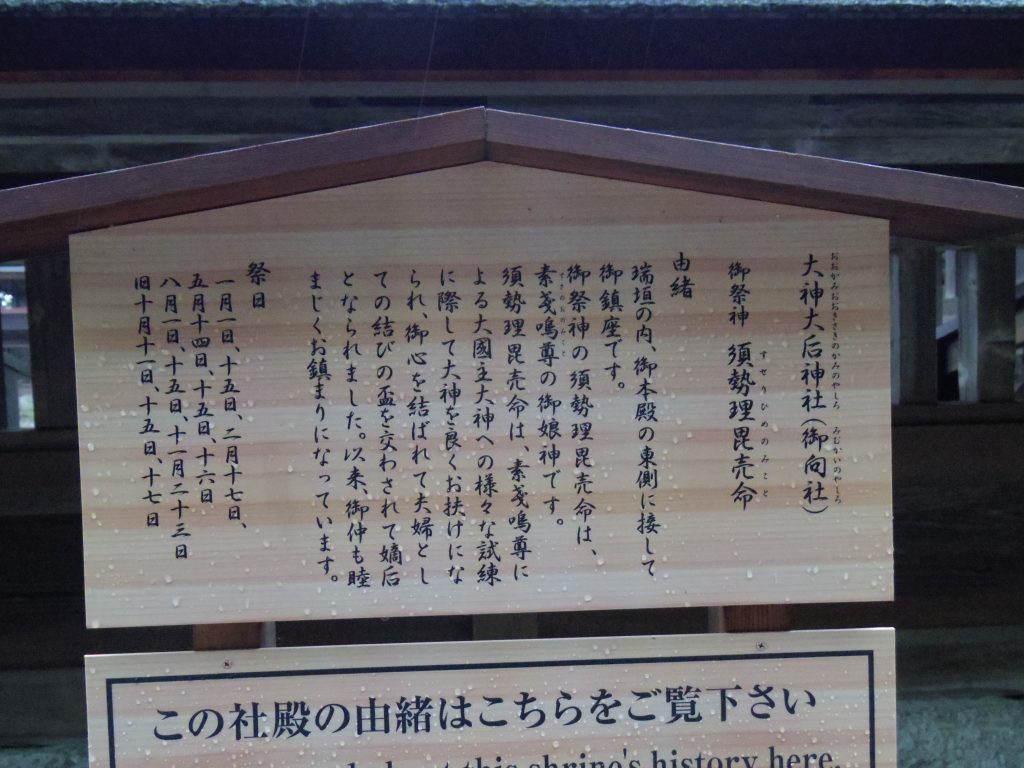 おおかみおおきさきのかみのやしろ　みむかいのやしろ
大神大后神社（御向社）
すせりひめのみこと
御祭神　須勢理毘売命
由緒
瑞垣の内、御本殿の東側に接して
御鎮座です。
御祭神の須勢理毘売命は、
すさのおのみこと
素戔嗚尊の御娘神です。
須勢理毘売命は、素戔嗚尊に
よる大國主大神への様々な試練
に際して大神を良くお扶けにな
られ、御心を結ばれて夫婦とし
ての結びの盃を交わされて嫡后
となられました。以来、御仲も睦
まじくお鎮まりになっています。
祭日
一月一日、十五日、二月十七日、
五月十四日、十五日、十六日
八月一日、十五日、十一月二十三日
旧十月十一日、十五日、十七日
この社殿の由緒はこちらをご覧下さい
this shrine's history here.